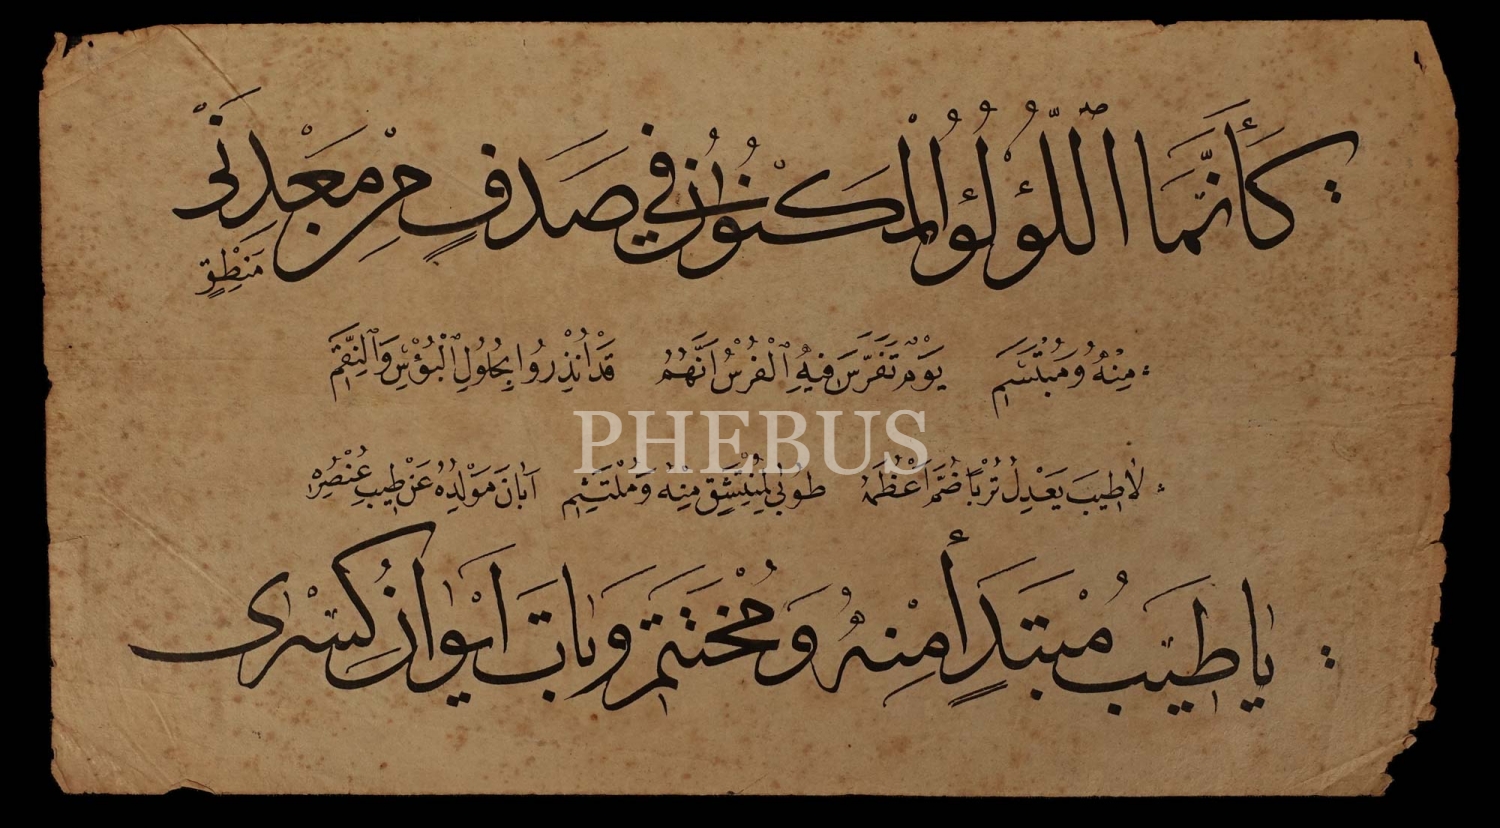 كَأَنَّمَا اللُّؤْلُؤُ الْمَكْنُونُ فِي صَدَفٍ مِنْ مَعْدِنَيْ
مَنْطِقٍ
مِنْهُ وَمُبْتَسَمِ يَوْمٌ تَفَرَّسَ فِيهِ الْفُرْسُ اَنَّهُمُ قَدْ اُنْذِرُوا بِحُلُولِ الْبُؤْسِ وَالنِّقَمِ
PHEBUS
لَا طِيبَ يَعْدِلُ تُرْبًا ضَمَّ اَعْظُمَهُ طُوبٰى لِمُنْتَشِقٍ مِنْهُ وَمُلْتَثِمِ اَبَانَ مَوْلِدُهُ عَنْ طِيبِ عُنْصُرِهِ
يَا طِيبَ مُبْتَدَأٍ مِنْهُ وَمُخْتَتَمِ وَبَاتَ اَيْوَانُ كِسْرٰى